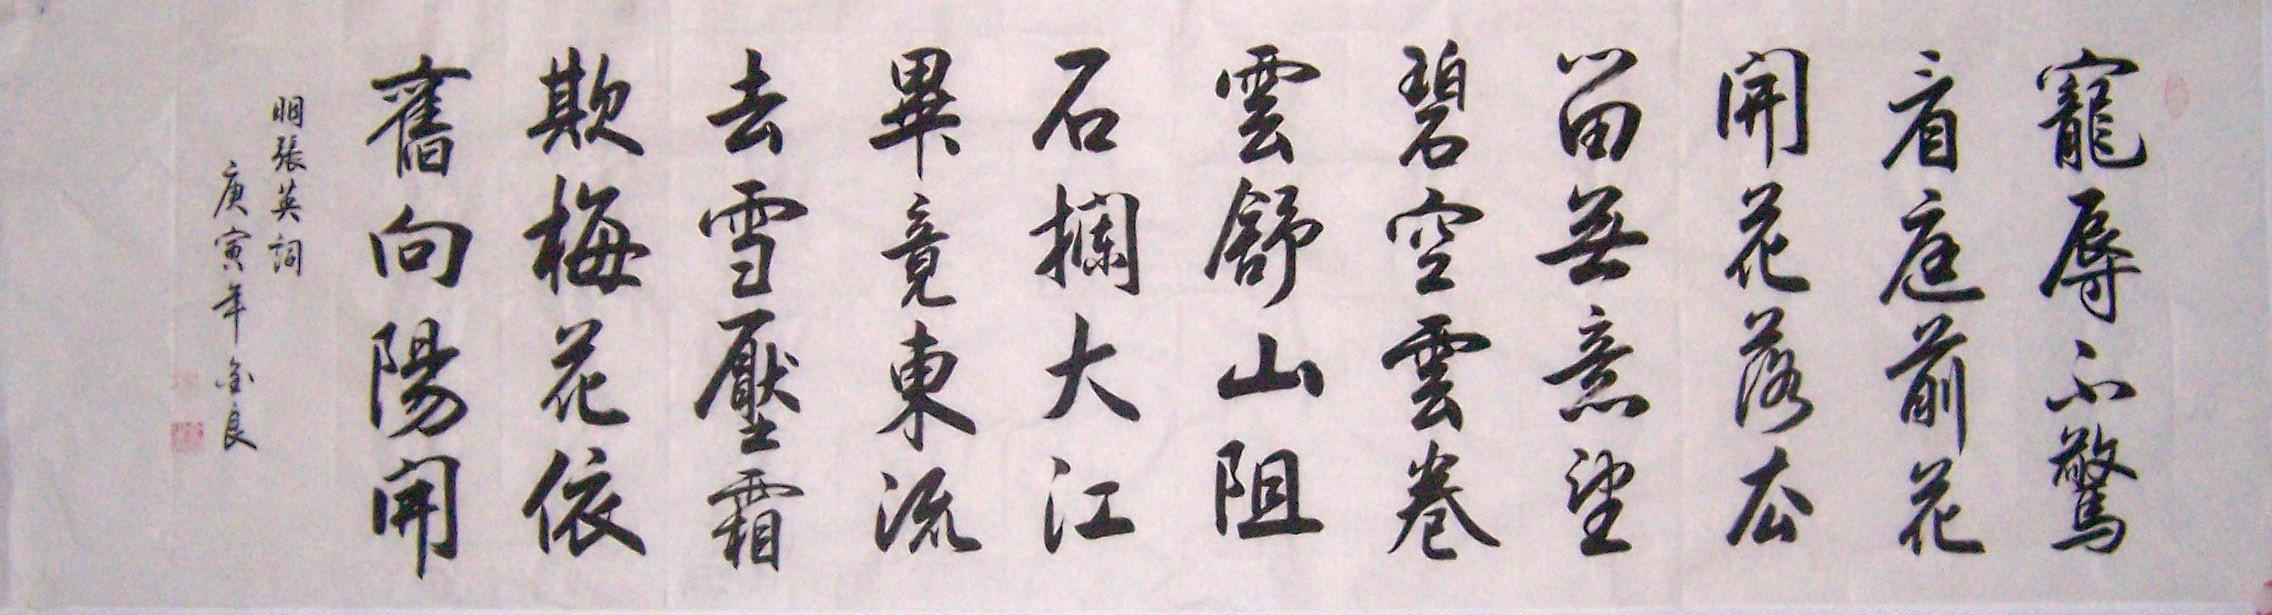 寵辱不驚
看庭前花
開花落去
留無意望
碧空雲卷
雲舒山阻
石攔大江
畢竟東流
去雪壓霜
欺梅花依
舊向陽開
明張英詞
庚寅年金良